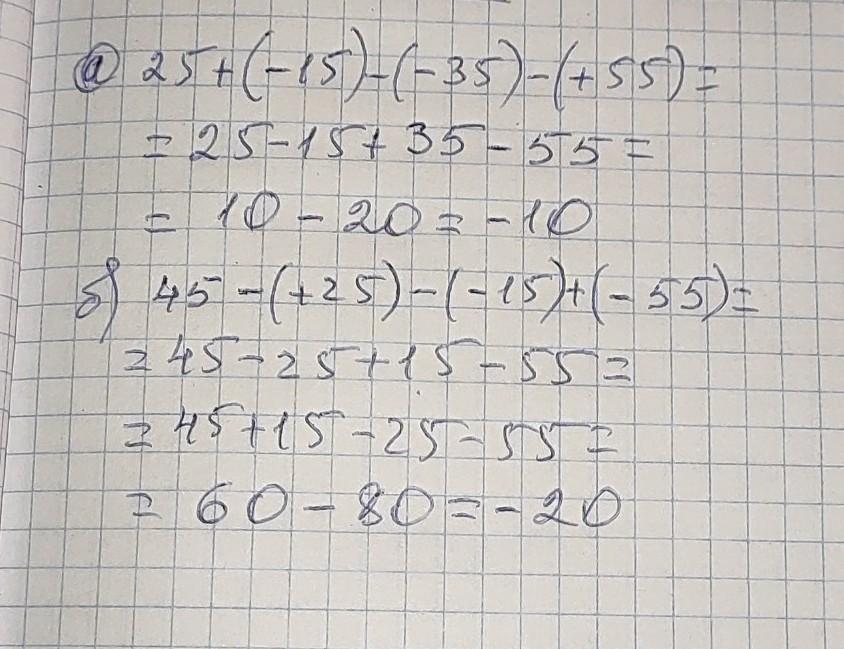 а) 25+(-15)-(-35)-(+55)=
=25-15+35-55=
= 10-20=-10
б) 45-(+25)-(-15)+(-55)=
=45-25+15-55=
=45+15-25-55=
= 60-80=-20